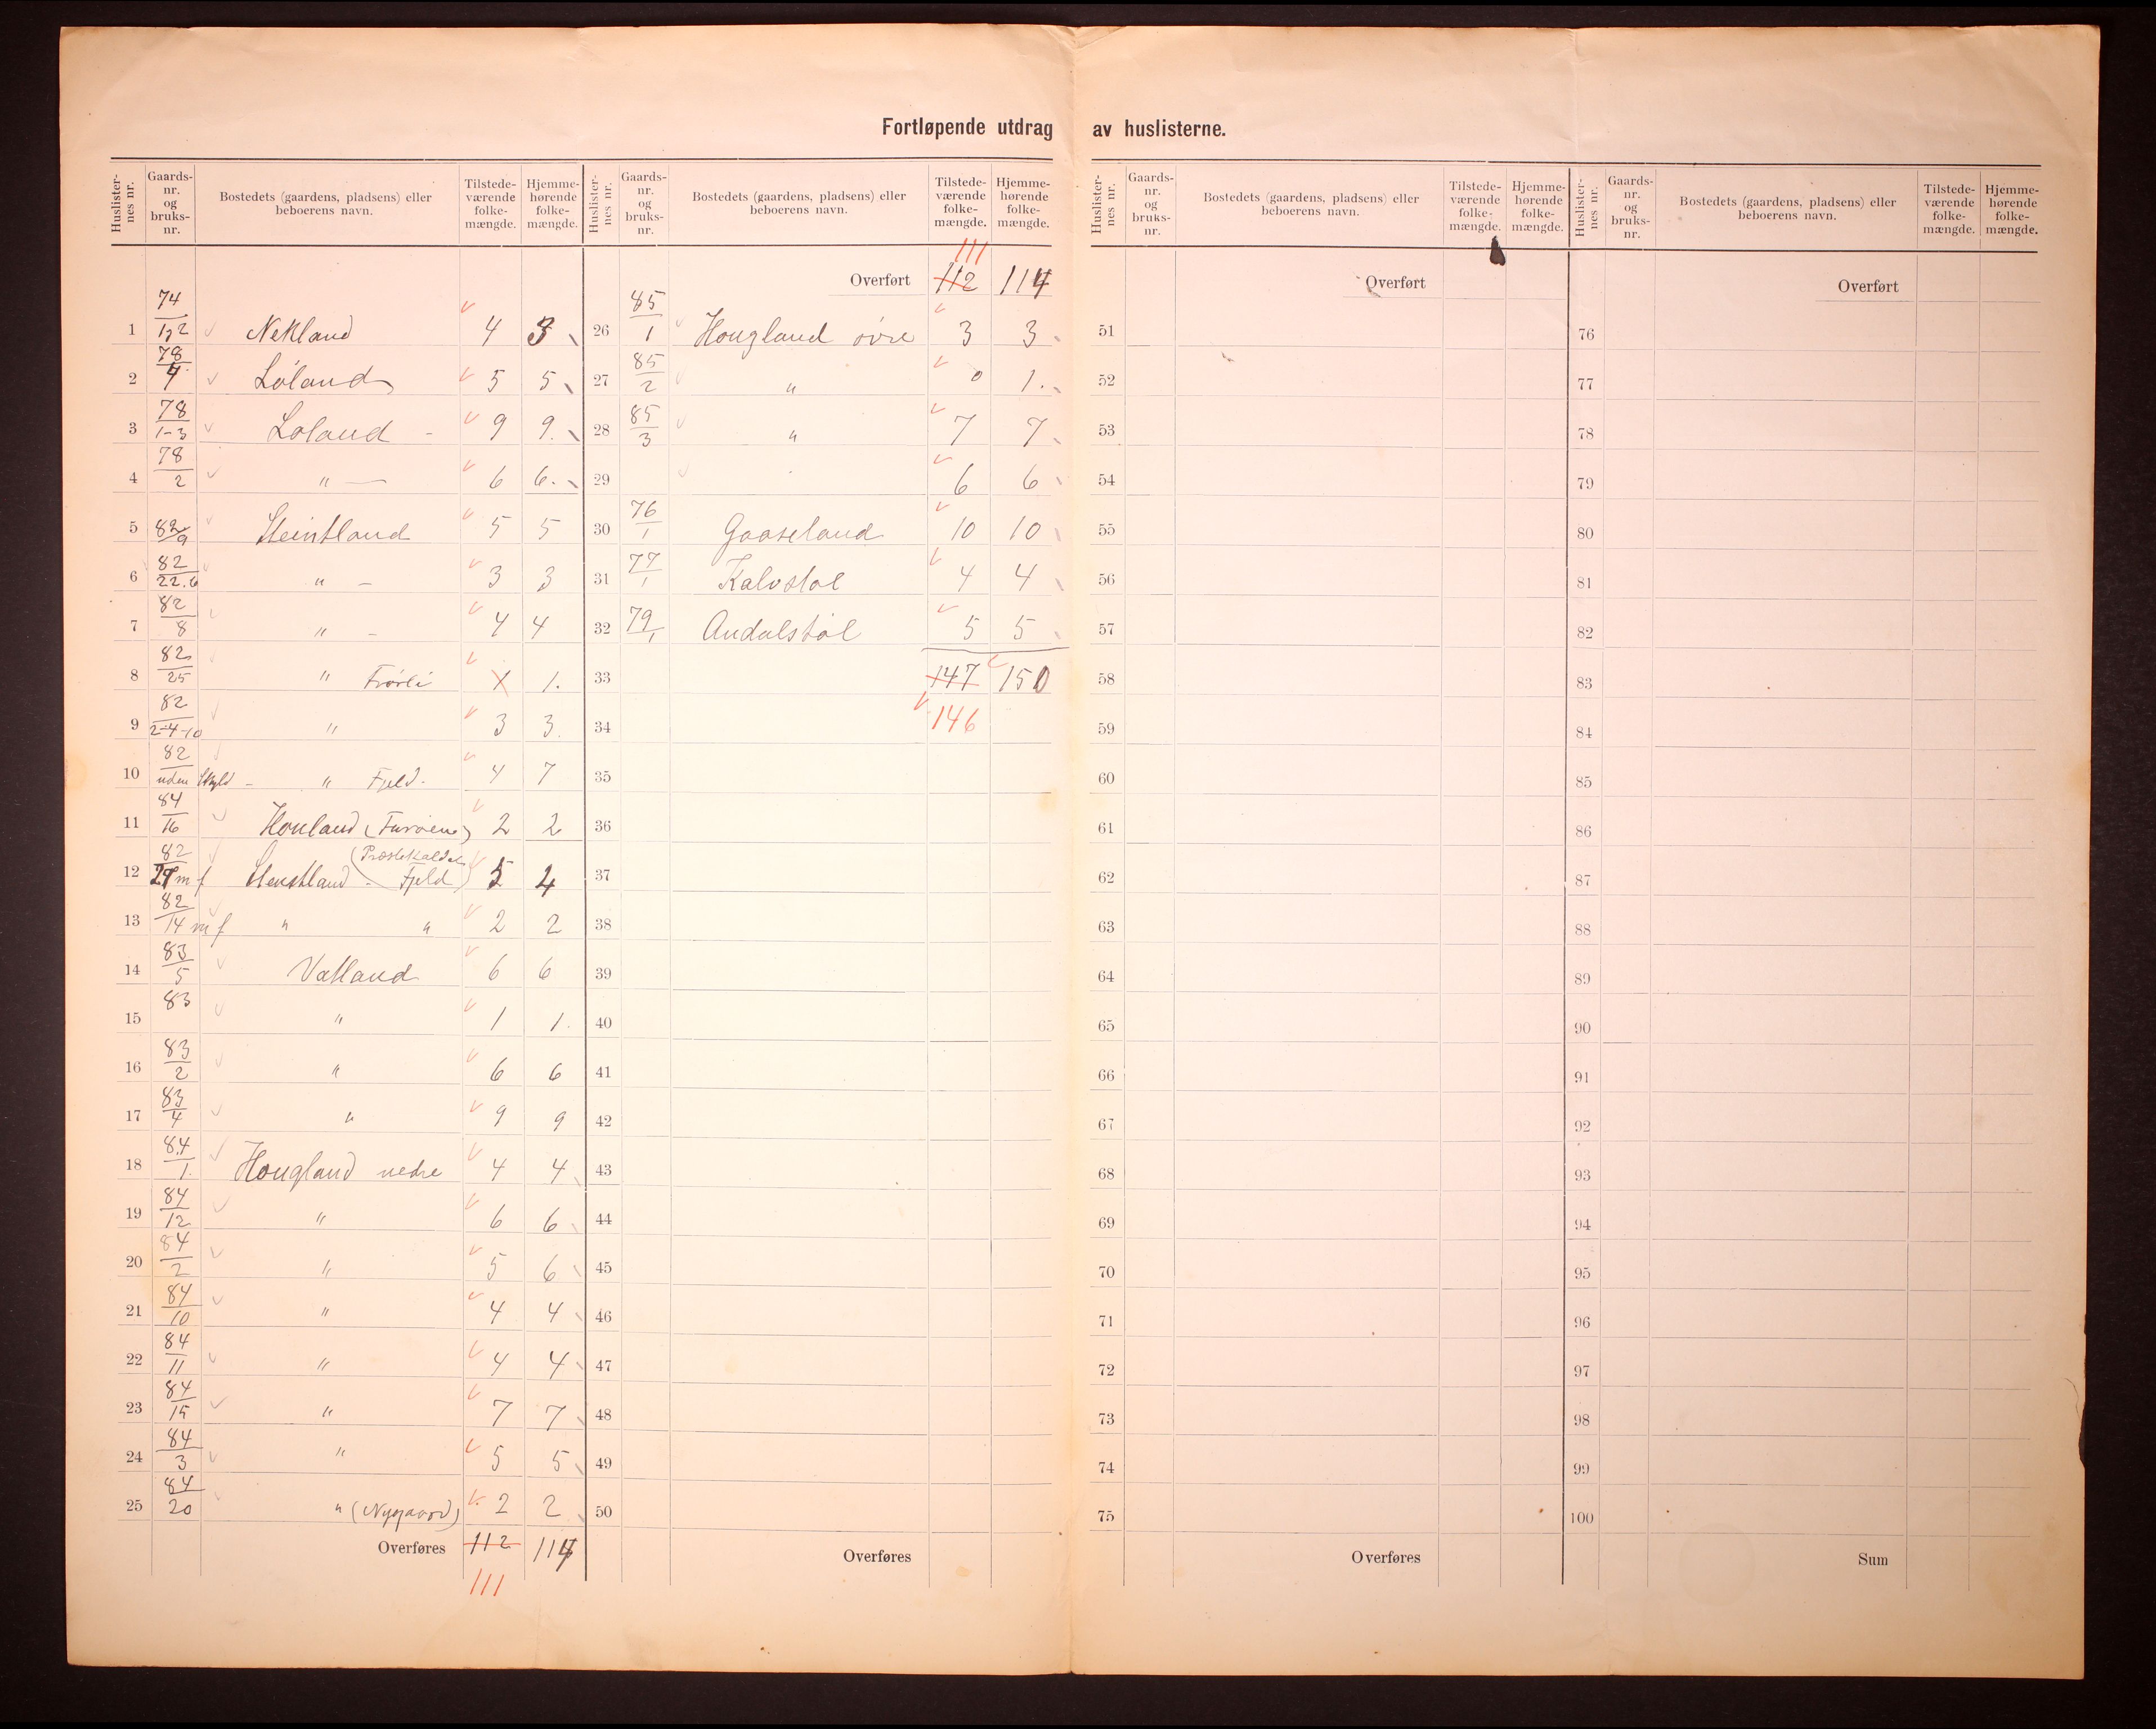 Fortløpende utdrag av huslisterne.
Huslister-nes nr. | Gaards-nr. og bruks-nr. | Bostedets (gaardens, pladsens) eller beboerens navn. | Tilstede-værende folke-mængde. | Hjemme-hørende folke-mængde.
1 74/1,2 Nekland 4 3
2 78/4 Løland 5 5
3 78/1-3 Løland - 9 9.
4 78/2 " — 6 6.
5 82/9 Steintland 5 5
6 82/22.6 " - 3 3
7 82/8 " - 4 4
8 82/25 " Frørli 1 1.
9 82/2-4-10 " 3 3.
10 82/uden Skyld - " Fjeld. 4 7
11 84/16 Houland (Furøene) 2 2
12 82/29 m f Stenstland - (Præstekaldets Fjeld) 5 4
13 82/14 m f " " 2 2
14 83/5 Vatland 6 6
15 83 " 1 1.
16 83/2 " 6 6
17 83/4 " 9 9
18 84/1. Hougland nedre 4 4
19 84/12 " 6 6
20 84/2 " 5 6
21 84/10 " 4 4
22 84/11 " 4 4
23 84/15 " 7 7
24 84/3 " 5 5
25 84/20 " (Nygaard) 2 2
Overføres 112 114
111
Huslister-nes nr. | Gaards-nr. og bruks-nr. | Bostedets (gaardens, pladsens) eller beboerens navn. | Tilstede-værende folke-mængde. | Hjemme-hørende folke-mængde.
111
Overført 112 114
26 85/1 Hougland øvre 3 3
27 85/2 " 0 1.
28 85/3 " 7 7
29 6 6
30 76/1 Gaaseland 10 10
31 77/1 Kalvstøl 4 4
32 79/1 Andalstøl 5 5
33 147 150
34 146
35
36
37
38
39
40
41
42
43
44
45
46
47
48
49
50
Overføres
Huslister-nes nr. | Gaards-nr. og bruks-nr. | Bostedets (gaardens, pladsens) eller beboerens navn. | Tilstede-værende folke-mængde. | Hjemme-hørende folke-mængde.
Overført
51
52
53
54
55
56
57
58
59
60
61
62
63
64
65
66
67
68
69
70
71
72
73
74
75
Overføres
Huslister-nes nr. | Gaards-nr. og bruks-nr. | Bostedets (gaardens, pladsens) eller beboerens navn. | Tilstede-værende folke-mængde. | Hjemme-hørende folke-mængde.
Overført
76
77
78
79
80
81
82
83
84
85
86
87
88
89
90
91
92
93
94
95
96
97
98
99
100
Sum